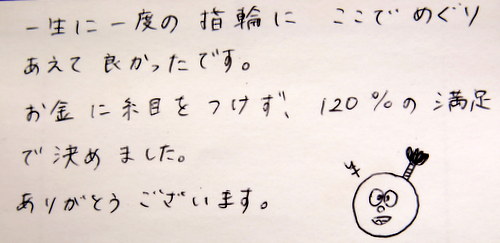 一生に一度の指輪に ここで めぐり
あえて 良かったです。
お金に糸目をつけず、120%の満足
で決めました。
ありがとうございます。